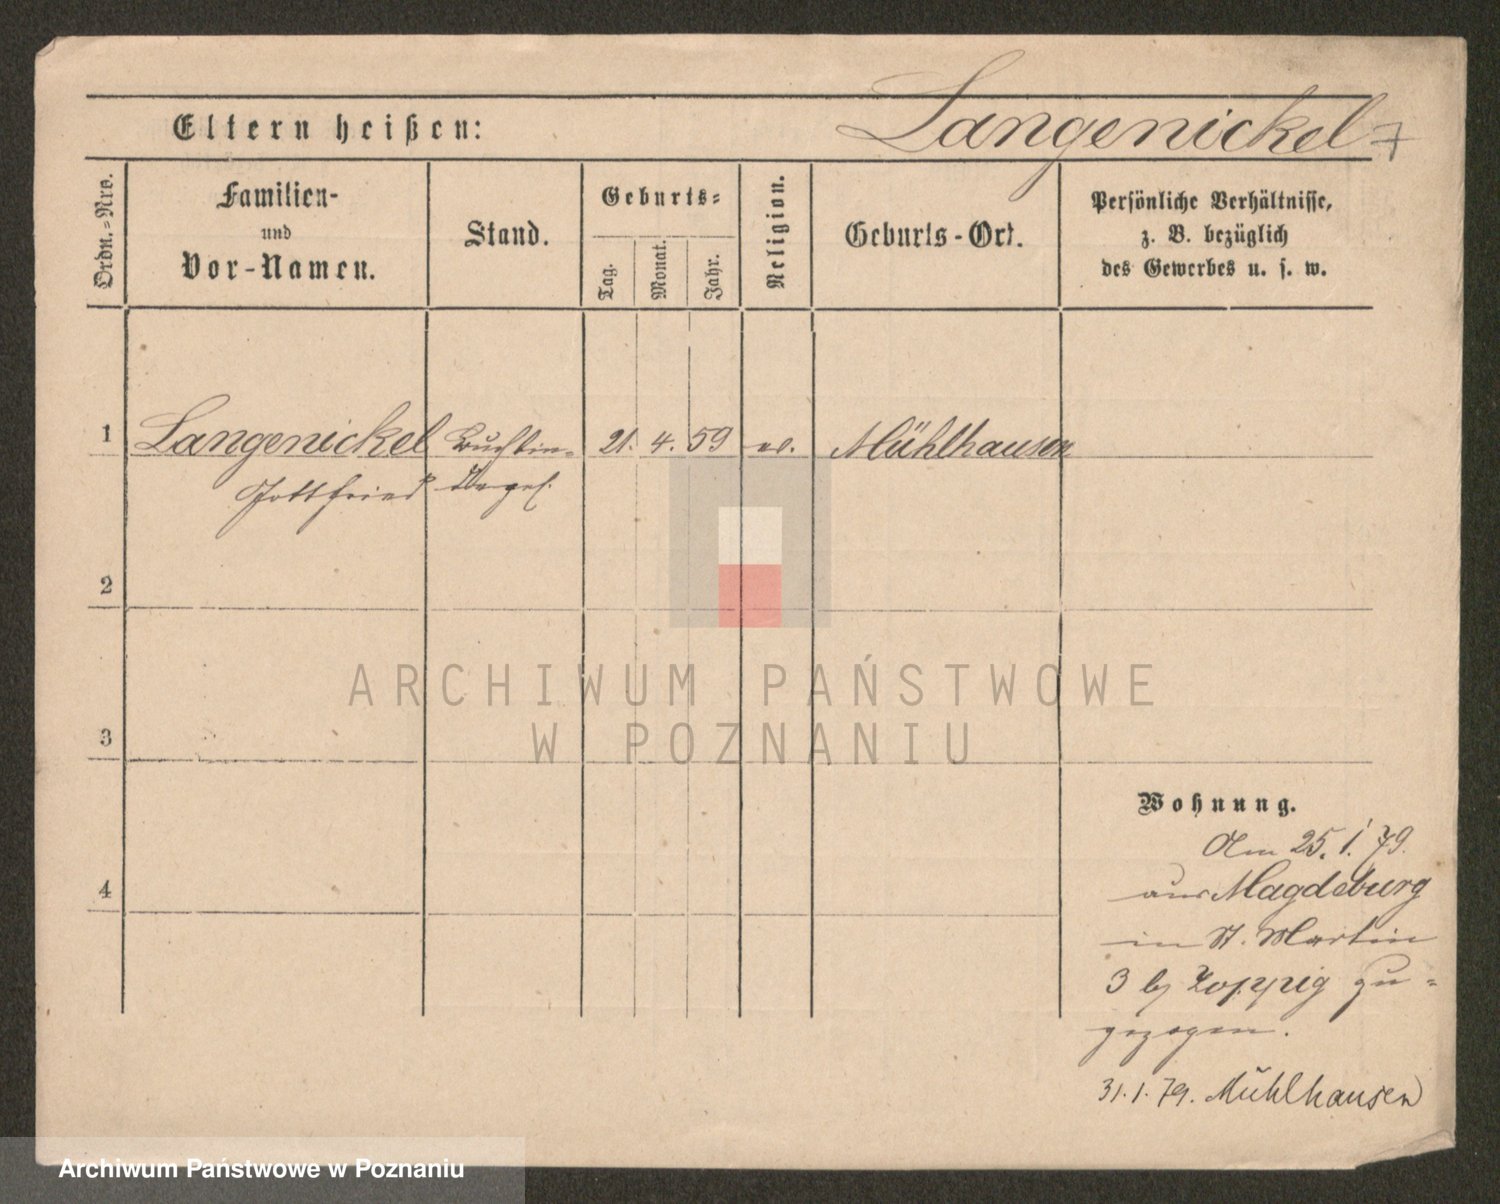 Langenickel
Eltern heißen:
Ordn.-Nro.
Familien-
und
Vor-Namen.
Stand.
Geburts-
Tag.
Monat.
Jahr.
Religion.
Geburts-Ort.
Persönliche Verhältnisse,
z. B. bezüglich
des Gewerbes u. s. w.
1 Langenickel 21. 4. 59 ev. Mühlhausen
Gottfried
2
3
4
ARCHIWUM PAŃSTWOWE
W POZNANIU
Wohnung.
Am 25. 1. 79.
aus Magdeburg
in St. Martin
3 by zu-
gezogen.
31. 1. 79. Mühlhausen
Archiwum Państwowe w Poznaniu